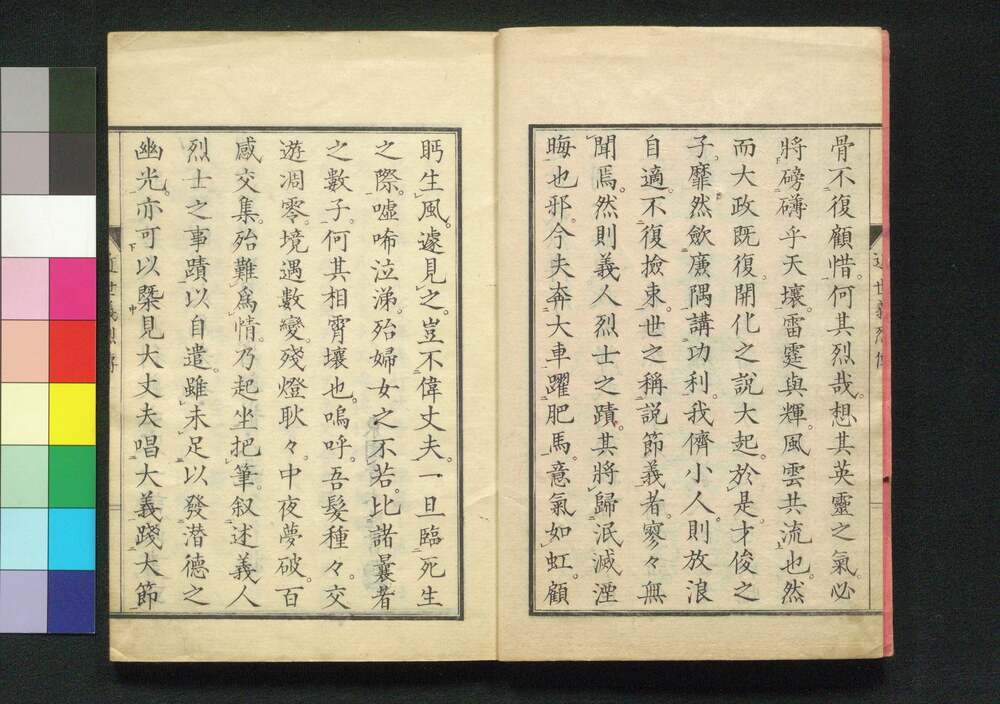 骨不復顧惜。何其烈哉。想其英靈之氣。必
將磅礴乎天壤。雷霆與輝。風雲共流也。然
而大政既復。開化之說大起。於是。才俊之
子。靡然歛廉隅講功利。我儕小人。則放浪
自適。不復撿束。世之稱說節義者。寥々無
聞焉。然則義人烈士之蹟。其將歸泯滅湮
晦也邪。今夫奔大車躍肥馬。意氣如虹。顧
眄生風。遽見之。豈不偉丈夫。一旦臨死生
之際。噓唏泣涕。殆婦女之不若。比諸曩者
之數子。何其相霄壤也。嗚呼。吾髮種々。交
遊凋零。境遇數變。殘燈耿々。中夜夢破。百
感交集。殆難爲情。乃起坐把筆。叙述義人
烈士之事蹟。以自遣。雖未足以發潜德之
幽光。亦可以槩見大丈夫唱大義踐大節
近世義烈傳
近世義烈傳